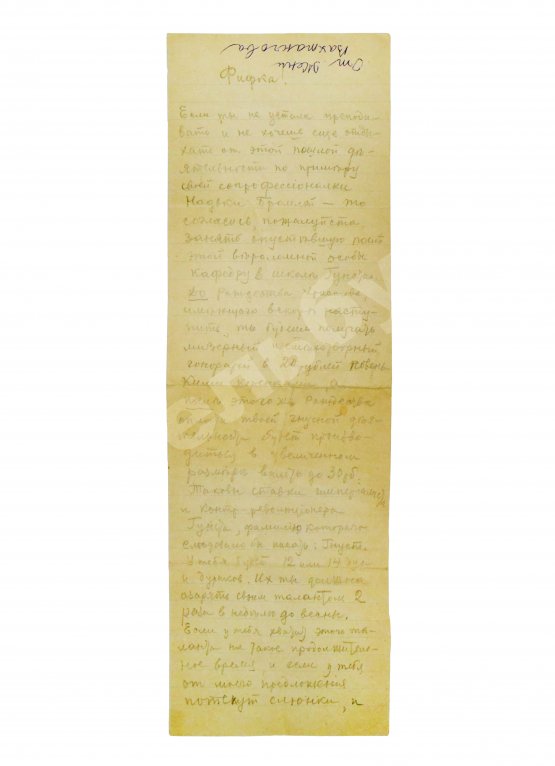 От Жени
Вахтангова
Фифка!
Если ты не устала преподо-
вать и не хочешь еще отды-
хать от этой пошлой дѣ-
ятельности по примѣру
своей сопрофессіоналки
Надьки Бромлей — то
согласись, пожалуйста
занять опустѣвшую
этой вѣроломной особы
кафедру в школѣ Гунста.
До рождества Христова
имѣющего вскорѣ насту-
пить, ты будешь получать
мизерный
гонорарій в 20 рублей
а
послѣ этого же Рождества
оплата твоей гнусной дѣя-
тельности будет произво-
диться в увеличенном
размѣрѣ вплоть до 30 рб.
Таковы ставки имперіалиста
и контр-революціонера
Гунста, фамилію которого
слѣдовало бы писать: Гнуст.
У тебя будет 12 или 14 дур
и дураков. Их ты должна
озарять своим талантом 2
раза в недѣлю до весны.
Если у тебя хватит этого та-
ланта на такое продолжитель-
ное время и если у тебя
от моего предложения
потекут слюнки, и
эльбу